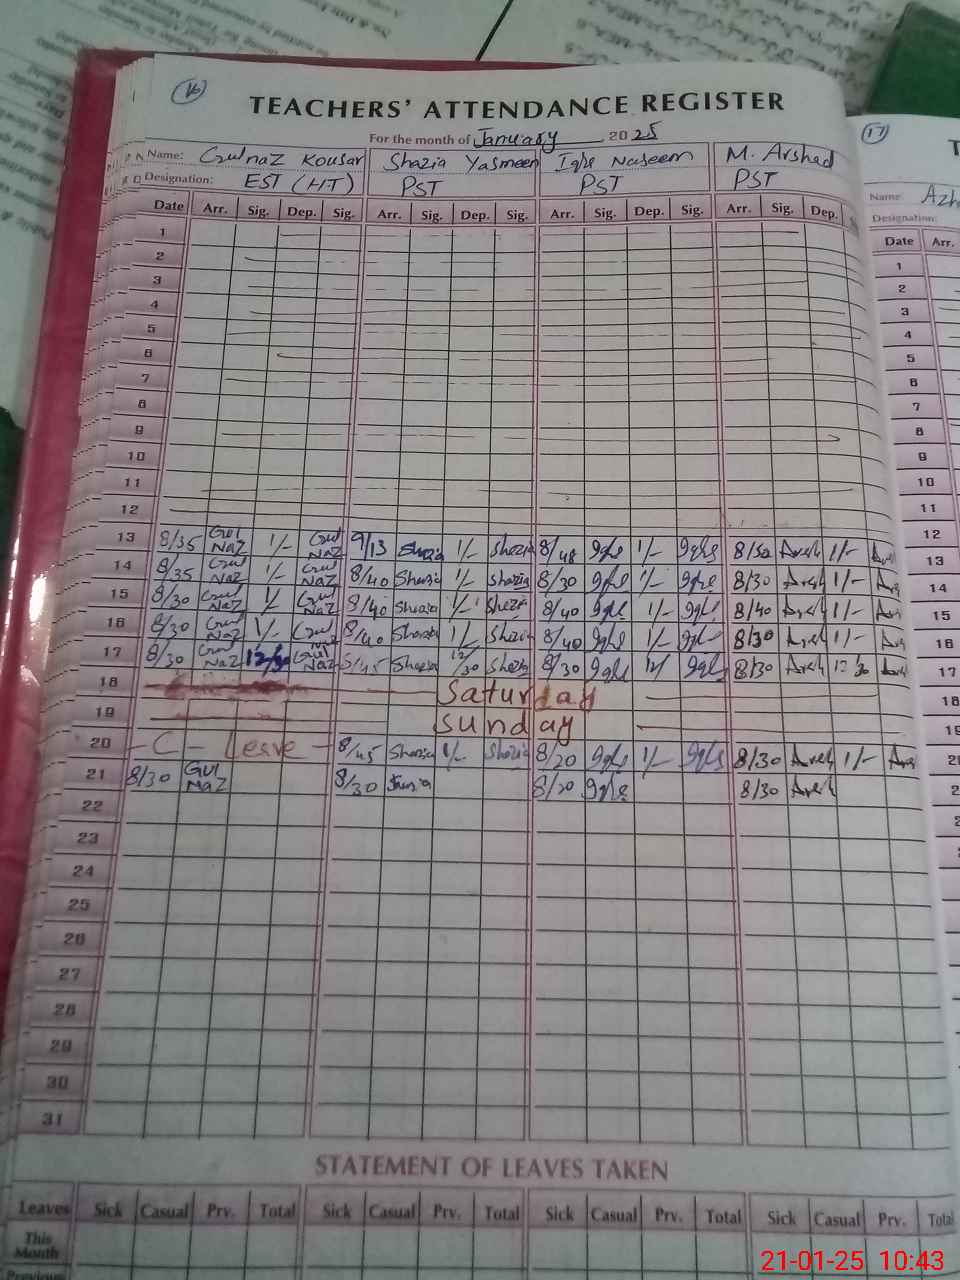 16
TEACHERS' ATTENDANCE REGISTER
For the month of January 2025
Name: Gulnaz Kousar Shazia Yasmeen Iqra Naseem M. Arshad
Designation: EST (HT) PST PST PST
Date Arr. Sig. Dep. Sig. Arr. Sig. Dep. Sig. Arr. Sig. Dep. Sig. Arr. Sig. Dep.
1
2
3
4
5
6
7
8
9
10
11
12
13 8/35 Gul Naz 1/- Gul Naz 9/13 Shazia 1/- Shazia 8/48 Iqra 1/- Iqra 8/50 Arsh 1/- Ars
14 8/35 Gul Naz 1/- Gul Naz 8/40 Shazia 1/- Shazia 8/30 Iqra 1/- Iqra 8/30 Arsh 1/- Ars
15 8/30 Gul Naz 1/- Gul Naz 8/40 Shazia 1/- Shazia 8/40 Iqra 1/- Iqra 8/40 Arsh 1/- Ars
16 8/30 Gul Naz 1/- Gul 8/40 Shazia 1/- Shazia 8/40 Iqra 1/- Iqra 8/30 Arsh 1/- Ars
17 8/30 Gul Naz 12/30 Gul Naz Shazia 12/30 Shazia 8/30 Iqra 12/ Iqra 8/30 Arsh 12/30 Ars
18 Saturday
19 Sunday
20 - C - Leave - 8/45 Shazia 1/- Shazia 8/20 Iqra 1/- Iqra 8/30 Arsh 1/- Ars
21 8/30 Gul Naz 8/30 Shazia 8/20 Iqra 8/30 Arsh
22
23
24
25
26
27
28
29
30
31
STATEMENT OF LEAVES TAKEN
Leaves Sick Casual Prv. Total Sick Casual Prv. Total Sick Casual Prv. Total Sick Casual Prv. Total
This Month
Previous
17
T
Name: Azh
Designation:
Date Arr.
1
2
3
4
5
6
7
8
9
10
11
12
13
14
15
16
17
18
19
21-01-25 10:43